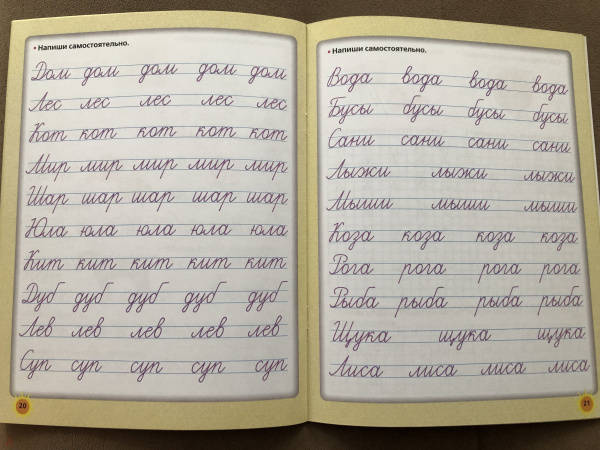 • Напиши самостоятельно.
Дом дом дом дом дом
Лес лес лес лес лес
Кот кот кот кот кот
Мир мир мир мир мир
Шар шар шар шар шар
Юла юла юла юла юла
Кит кит кит кит кит
Дуб дуб дуб дуб дуб
Лев лев лев лев лев
Суп суп суп суп суп
20
• Напиши самостоятельно.
Вода вода вода вода
Бусы бусы бусы бусы
Сани сани сани сани
Лыжи лыжи лыжи
Мыши мыши мыши
Коза коза коза коза
Рога рога рога рога
Рыба рыба рыба рыба
Щука щука щука
Лиса лиса лиса лиса
21